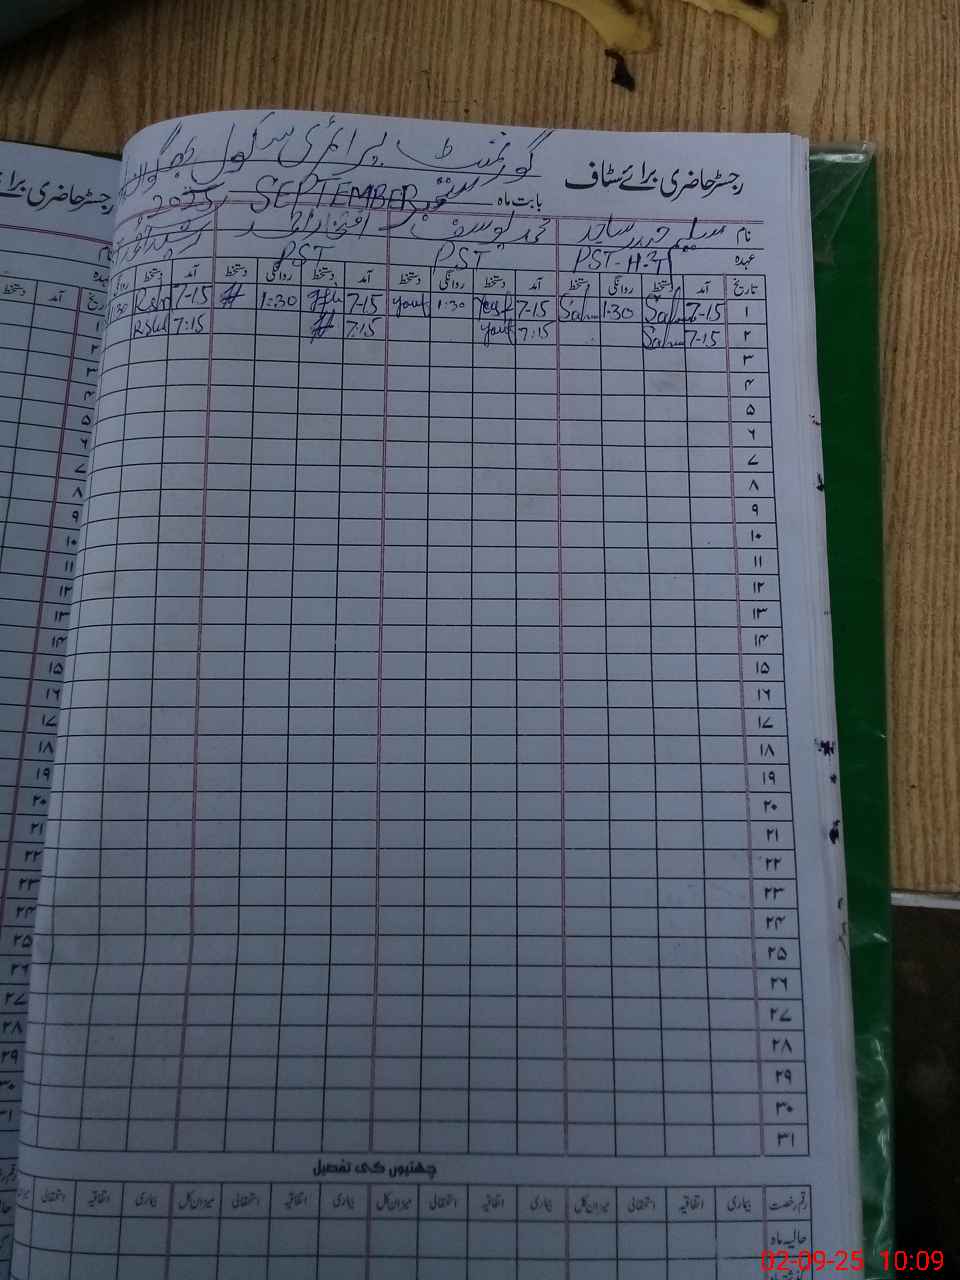 گورنمنٹ پرائمری سکول
رجسٹر حاضری برائے سٹاف
بابت ماہ ستمبر SEPTEMBER 2025
نام سلیم حیدر ساجد محمد یوسف افتخار احمد
عہدہ PST-H.T PST PST
تاریخ آمد دستخط روانگی دستخط آمد دستخط روانگی دستخط آمد دستخط روانگی دستخط آمد دستخط روانگی
۱ 7-15 1-30 7-15 1-30 7-15 1-30 7-15 1:30
۲ 7-15 7:15 7:15 7:15
۳
۴
۵
۶
۷
۸
۹
۱۰
۱۱
۱۲
۱۳
۱۴
۱۵
۱۶
۱۷
۱۸
۱۹
۲۰
۲۱
۲۲
۲۳
۲۴
۲۵
۲۶
۲۷
۲۸
۲۹
۳۰
۳۱
چھٹیوں کی تفصیل
رقم رخصت بیماری اتفاقیہ استحقاقی میزان کل بیماری اتفاقیہ استحقاقی میزان کل بیماری اتفاقیہ استحقاقی میزان کل بیماری اتفاقیہ استحقاقی
حالیہ ماہ
02-09-25 10:09